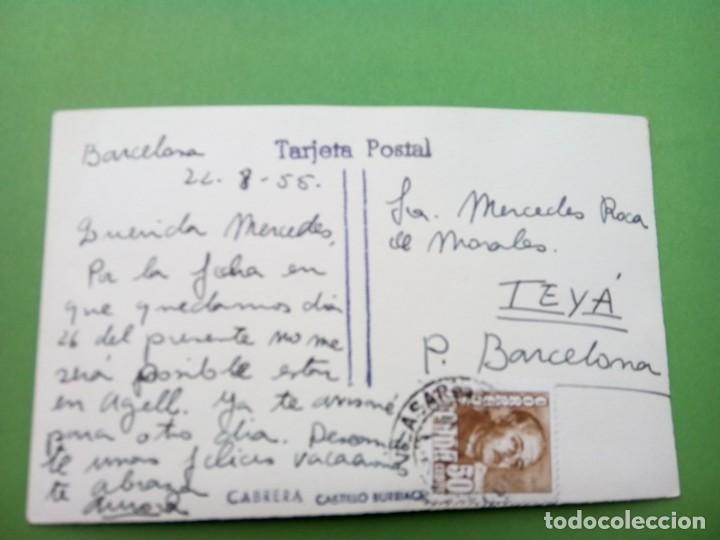 Barcelona
22-8-55.
Tarjeta Postal
Querida Mercedes,
Por la fecha en
que quedamos día
26 del presente no me
será posible estar
en Agell. Ya te avisaré
para otro día. Deseando
te unas felices vacaciones
te abraza
Aurora
Sra. Mercedes Roca
de Morales.
TEYÁ
P. Barcelona
CORREOS
50
CABRERA CASTILLO BURRIAC
todocoleccion
todocoleccion.net